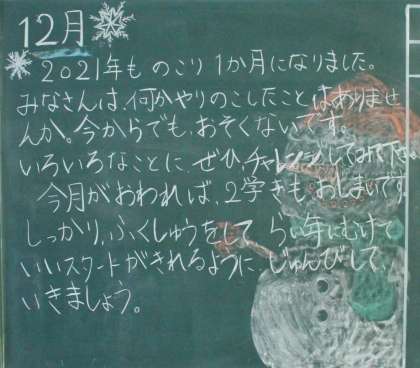 12月
2021年も のこり 1か月になりました。
みなさんは、何かやりのこしたことはありませ
んか。今からでも、おそくないです。
いろいろなことに、ぜひチャレンジしてみて下さ
今月がおわれば、2学きも、おしまいです
しっかり、ふくしゅうをして らい年にむけて
いいスタートがきれるように、じゅんびして、
いきましょう。